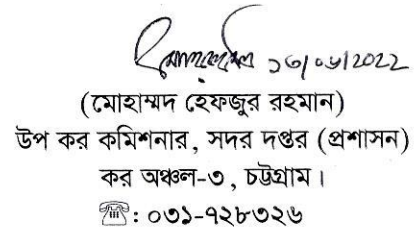 ১৬/০৬/2022
(মোহাম্মদ হেফজুর রহমান)
উপ কর কমিশনার, সদর দপ্তর (প্রশাসন)
কর অঞ্চল-৩, চট্টগ্রাম।
☎: ০৩১-৭২৮৩২৬